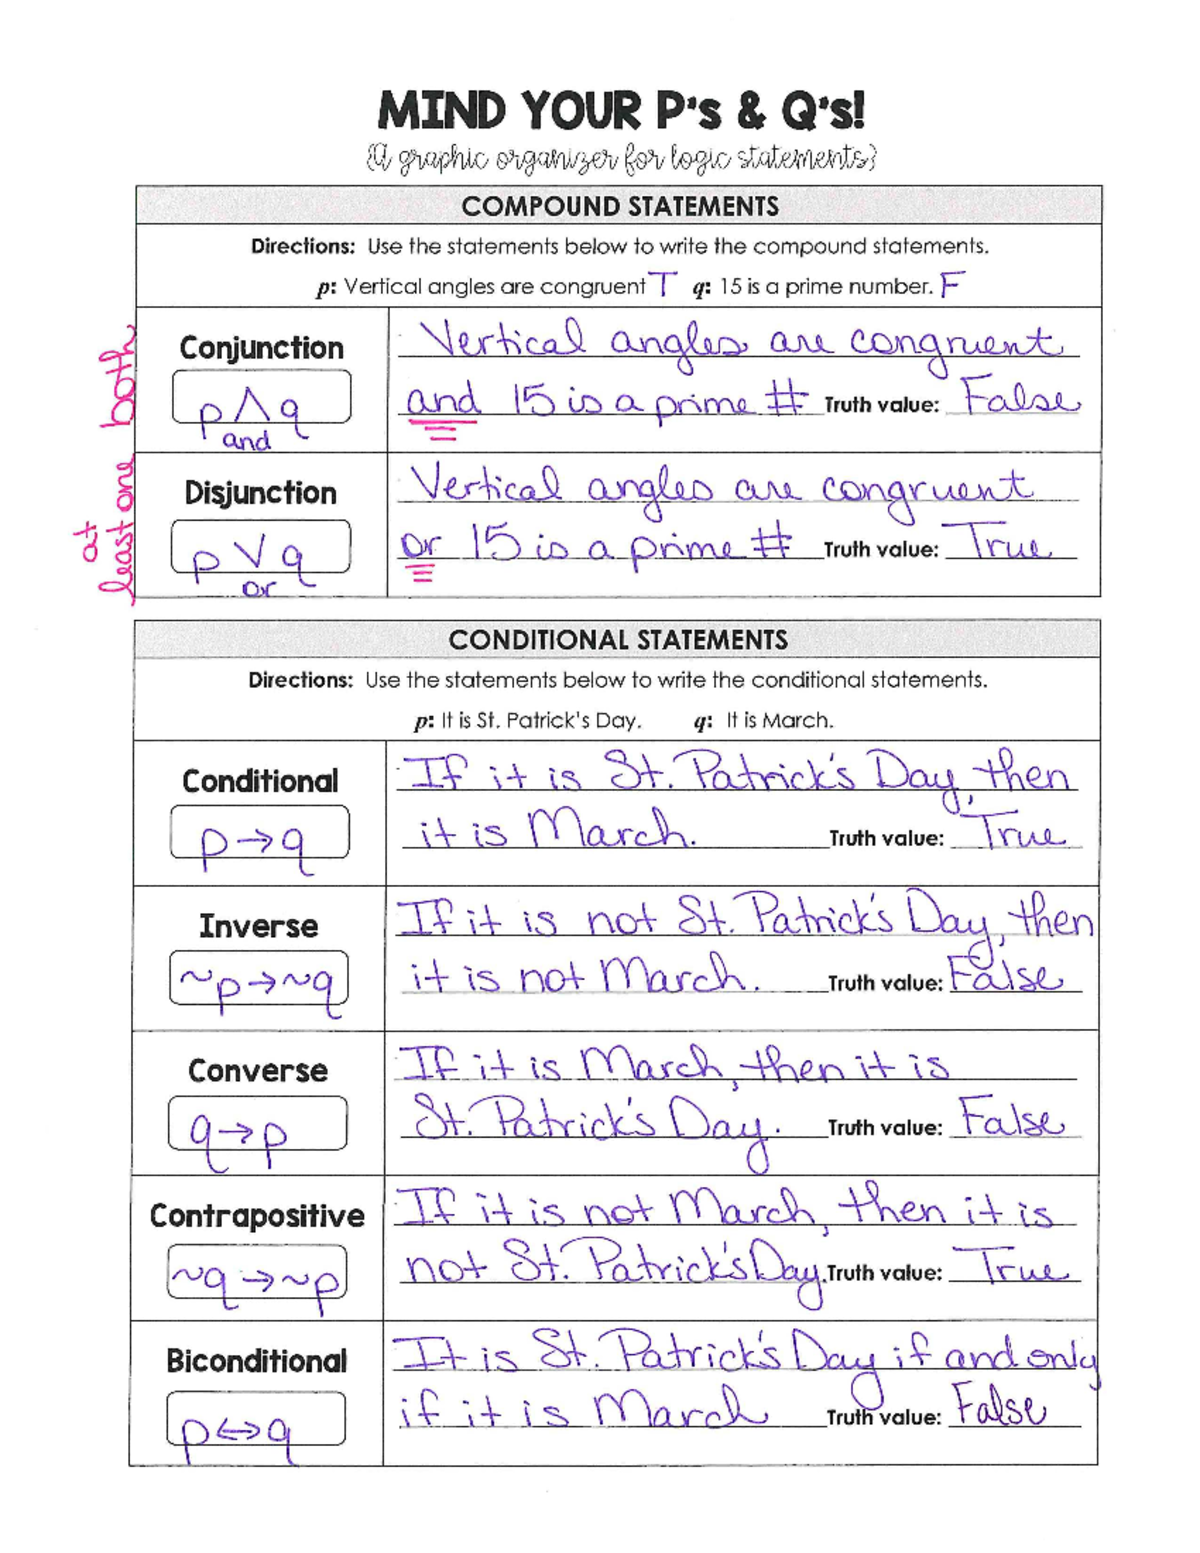 MIND YOUR P's & Q's!
{A graphic organizer for logic statements}
COMPOUND STATEMENTS
Directions: Use the statements below to write the compound statements.
p: Vertical angles are congruent T q: 15 is a prime number. F
both
Conjunction
p ∧ q
and
Vertical angles are congruent
and 15 is a prime # Truth value: False
at
least one
Disjunction
p ∨ q
or
Vertical angles are congruent
or 15 is a prime # Truth value: True
CONDITIONAL STATEMENTS
Directions: Use the statements below to write the conditional statements.
p: It is St. Patrick's Day. q: It is March.
Conditional
p→q
If it is St. Patrick's Day, then
it is March. Truth value: True
Inverse
~p→~q
If it is not St. Patrick's Day, then
it is not March. Truth value: False
Converse
q→p
If it is March, then it is
St. Patrick's Day. Truth value: False
Contrapositive
~q→~p
If it is not March, then it is
not St. Patrick's Day. Truth value: True
Biconditional
p↔q
It is St. Patrick's Day if and only
if it is March Truth value: False